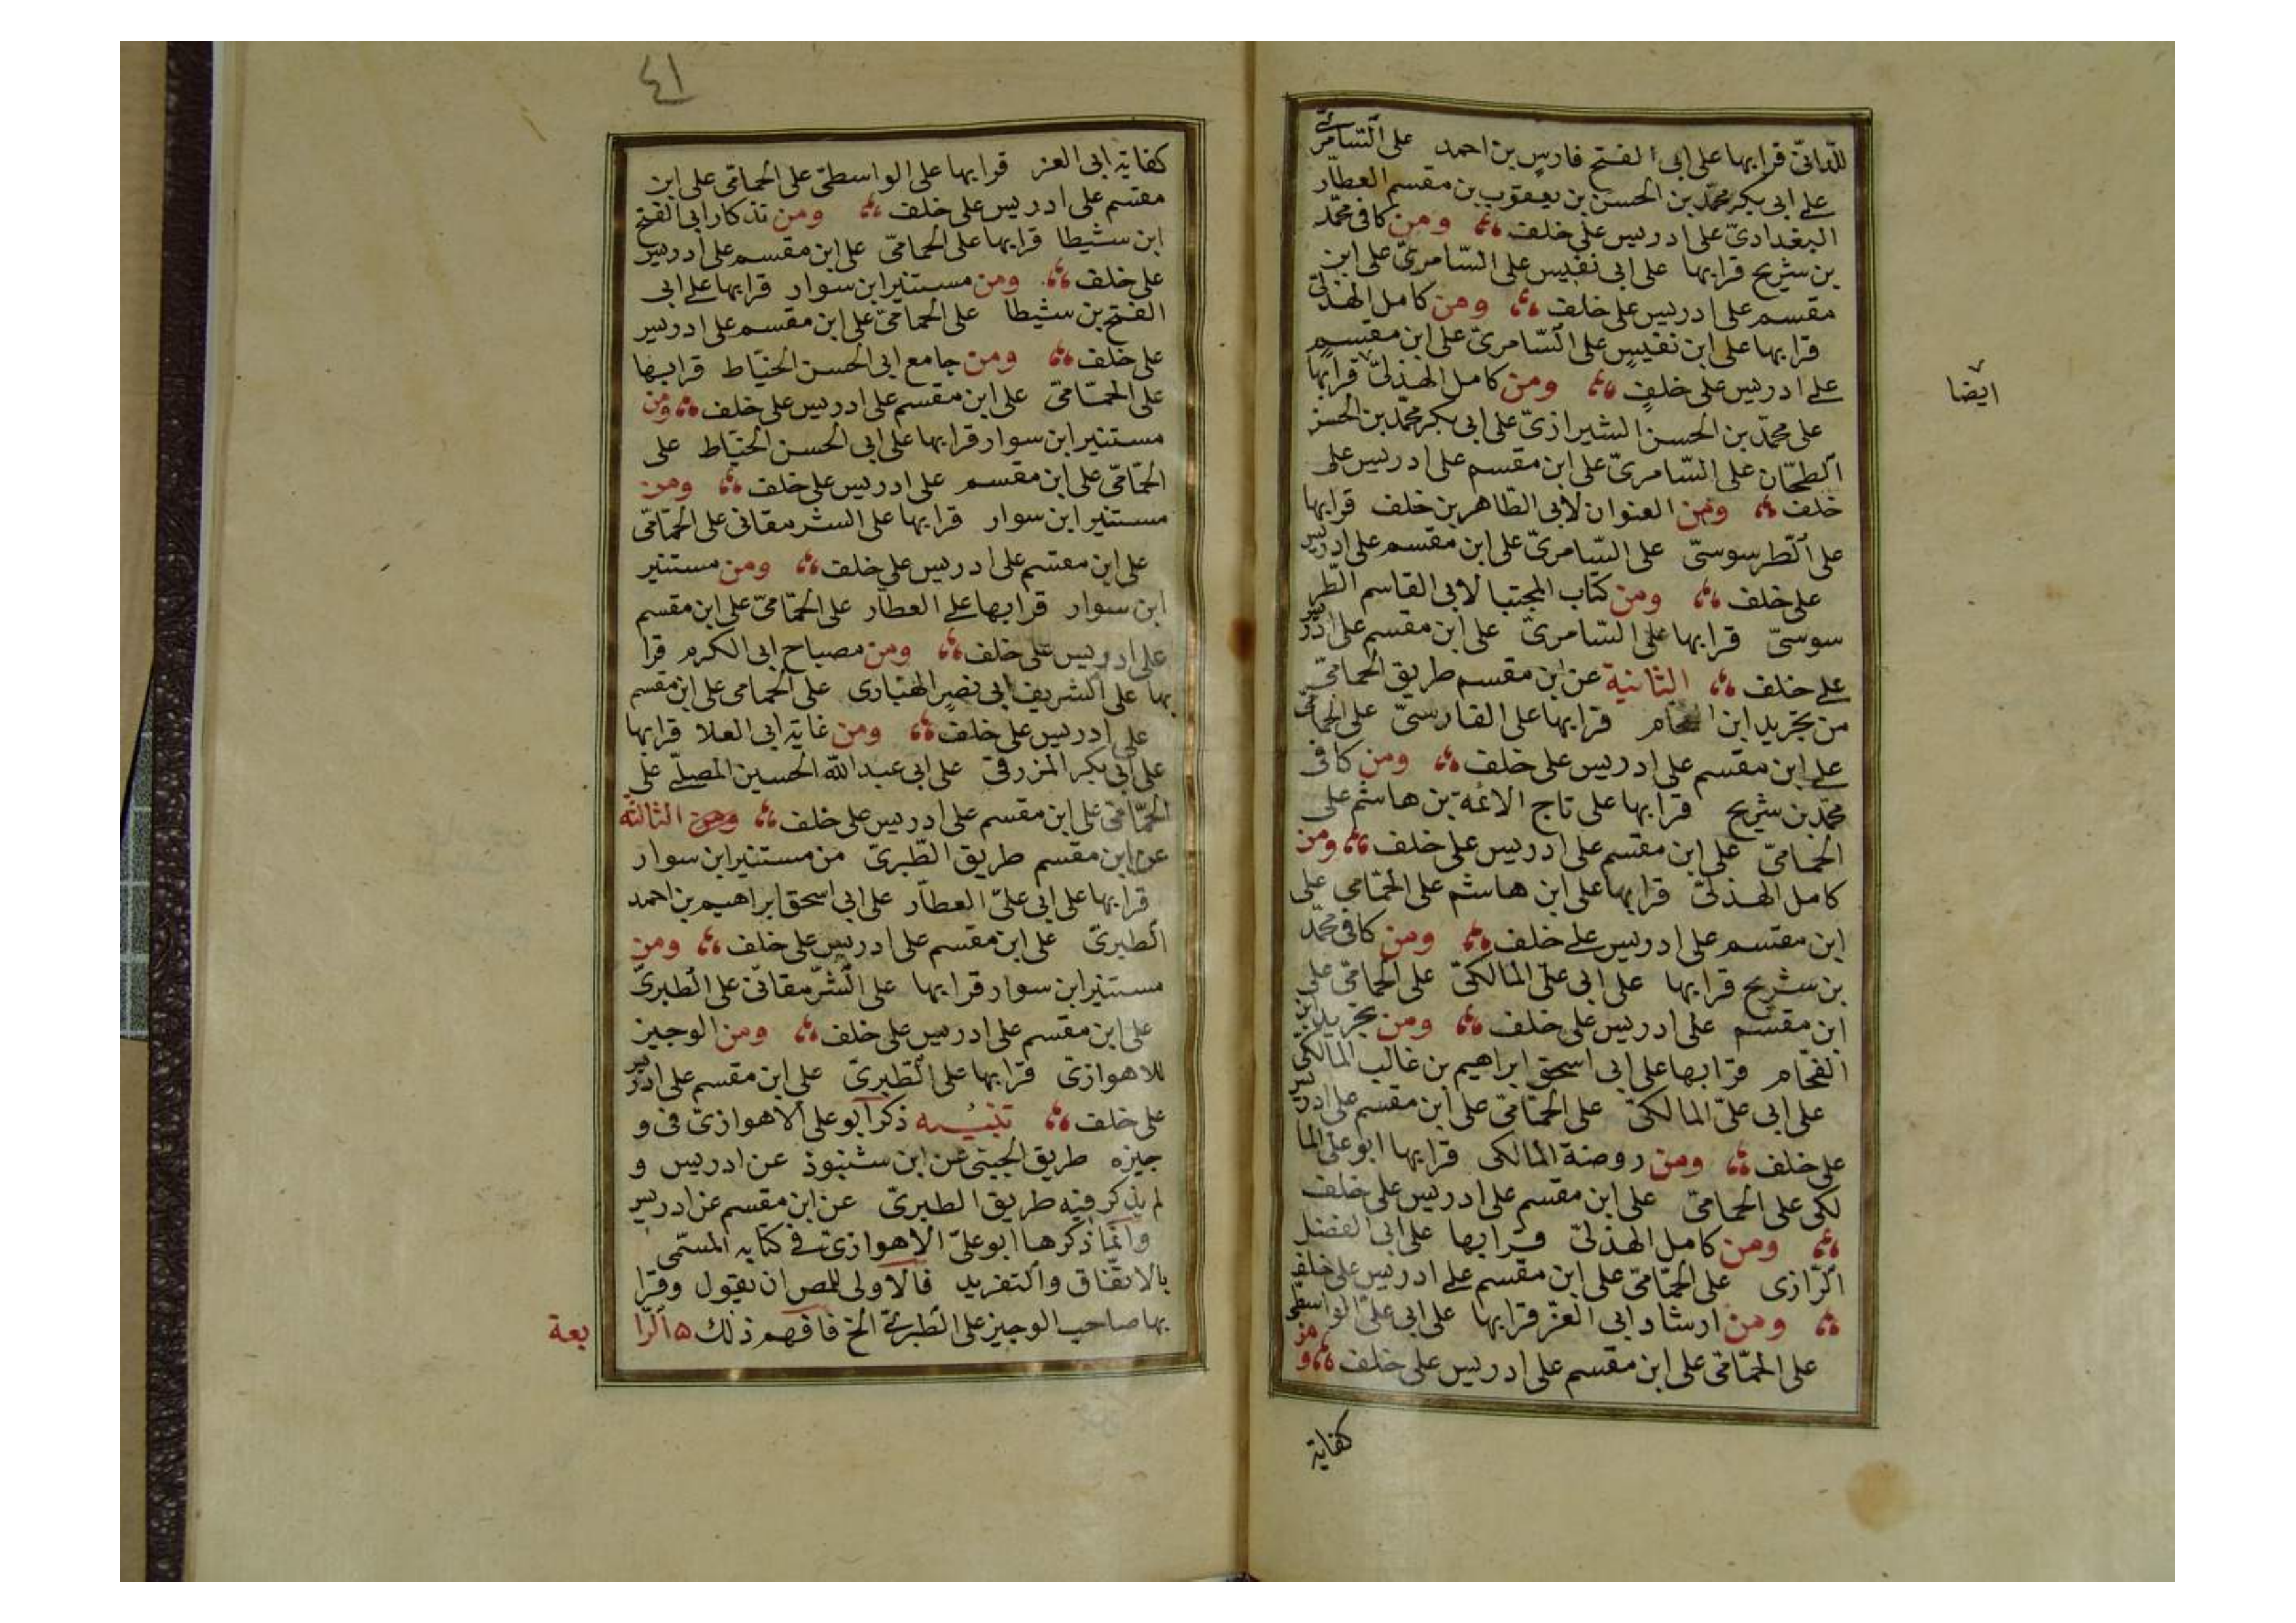 للدانىّ قرا بها على ابى الفتح فارس بن احمد على السّامرىّ
على ابى بكر محمّد بن الحسن بن يعقوب بن مقسم العطّار
البغدادىّ على ادريس على خلف ومن كافى محمّد
بن شريح قرا بها على ابى نفيس على السّامرىّ على ابن
مقسم على ادريس على خلف ومن كامل الهذلىّ
قرا بها على ابن نفيسٍ على السّامرىّ على ابن مقسمٍ
على ادريس على خلفٍ ومن كامل الهذلىّ قرا بها
ايضا
على محمّد بن الحسن الشيرازىّ على ابى بكر محمّد بن الحسن
الطحّان على السّامرىّ على ابن مقسم على ادريس على
خلف ومن العنوان لأبى الطّاهر بن خلف قرا بها
على الطّرسوسىّ على السّامرىّ على ابن مقسم على ادريس
على خلف ومن كتاب المجتبا لابى القاسم الطّر
سوسىّ قرا بها على السّامرىّ على ابن مقسم على ادريس
على خلف الثانية عن ابن مقسم طريق الحمامىّ
من تجريد ابن الفحام قرا بها على الفارسىّ على الحمامىّ
على ابن مقسم على ادريس على خلف ومن كافى
محمّد بن شريح قرا بها على تاج الائمة بن هاشم على
الحمّامىّ على ابن مقسم على ادريس على خلف ومن
كامل الهذلىّ قرا بها على ابن هاشم على الحمّامى على
ابن مقسم على ادريس على خلف ومن كافى محمّد
بن شريح قرا بها على ابى علىّ المالكىّ على الحمامىّ على
ابن مقسم على ادريس على خلف ومن تجريد ابن
الفحّام قرا بها على ابى اسحق ابراهيم بن غالب المالكى
على ابى علىّ المالكىّ على الحمّامىّ على ابن مقسم على ادريس
على خلف ومن روضة المالكى قرا بها ابو على الما
لكى على الحمامىّ على ابن مقسم على ادريس على خلف
ومن كامل الهذلىّ قرا بها على ابى الفضل
الرّازى على الحمّامىّ على ابن مقسم على ادريس على خلف
ومن ارشاد ابى العزّ قرا بها على ابى علىّ الواسطىّ
على الحمّامىّ على ابن مقسم على ادريس على خلف ومن
كفاية
٤١
كفاية ابى العز قرا بها على الواسطىّ على الحمامى على ابن
مقسم على ادريس على خلف ومن تذكار ابى الفتح
ابن شيطا قرا بها على الحمامىّ على ابن مقسم على ادريس
على خلف ومن مستنير ابن سوار قرا بها على ابى
الفتح بن شيطا على الحمامىّ على ابن مقسم على ادريس
على خلف ومن جامع ابى الحسن الخيّاط قرا بها
على الحمّامىّ على ابن مقسم على ادريس على خلف ومن
مستنير ابن سوار قرا بها على ابى الحسن الخيّاط على
الحمّامىّ على ابن مقسم على ادريس على خلف ومن
مستنير ابن سوار قرا بها على الشرمقانى على الحمّامىّ
على ابن مقسم على ادريس على خلف ومن مستنير
ابن سوار قرا بها على العطار على الحمّامىّ على ابن مقسم
على ادريس على خلف ومن مصباح ابى الكرم قرا
بها على الشريف ابى نصر الهبّارى على الحمامى على ابن مقسم
على ادريس على خلف ومن غاية ابى العلا قرا بها
على ابى بكر المزرفى على ابى عبد الله الحسين المصلّى على
الحمّامى على ابن مقسم على ادريس على خلف ومن الثالثة
عن ابن مقسم طريق الطّبرىّ من مستنير ابن سوار
قرا بها على ابى علىّ العطّار على ابى اسحق ابراهيم بن احمد
الطبرىّ على ابن مقسم على ادريس على خلف ومن
مستنير ابن سوار قرا بها على الشّرمقانىّ على الطبرىّ
على ابن مقسم على ادريس على خلف ومن الوجيز
للاهوازىّ قرا بها على الطّبرىّ على ابن مقسم على ادريس
على خلف تنبيه ذكر ابو على الاهوازىّ فى و
جيزه طريق الجبنى عن ابن شنبوذ عن ادريس و
لم يذكر فيه طريق الطبرىّ عن ابن مقسم عن ادريس
وانما ذكرها ابو علىّ الاهوازىّ فى كتابه المسمّى
بالاتفاق والتفريد فالاولى للمص ان يقول وقرا
بها صاحب الوجيز على الطبرىّ الخ فافهم ذلك الرّا
بعة